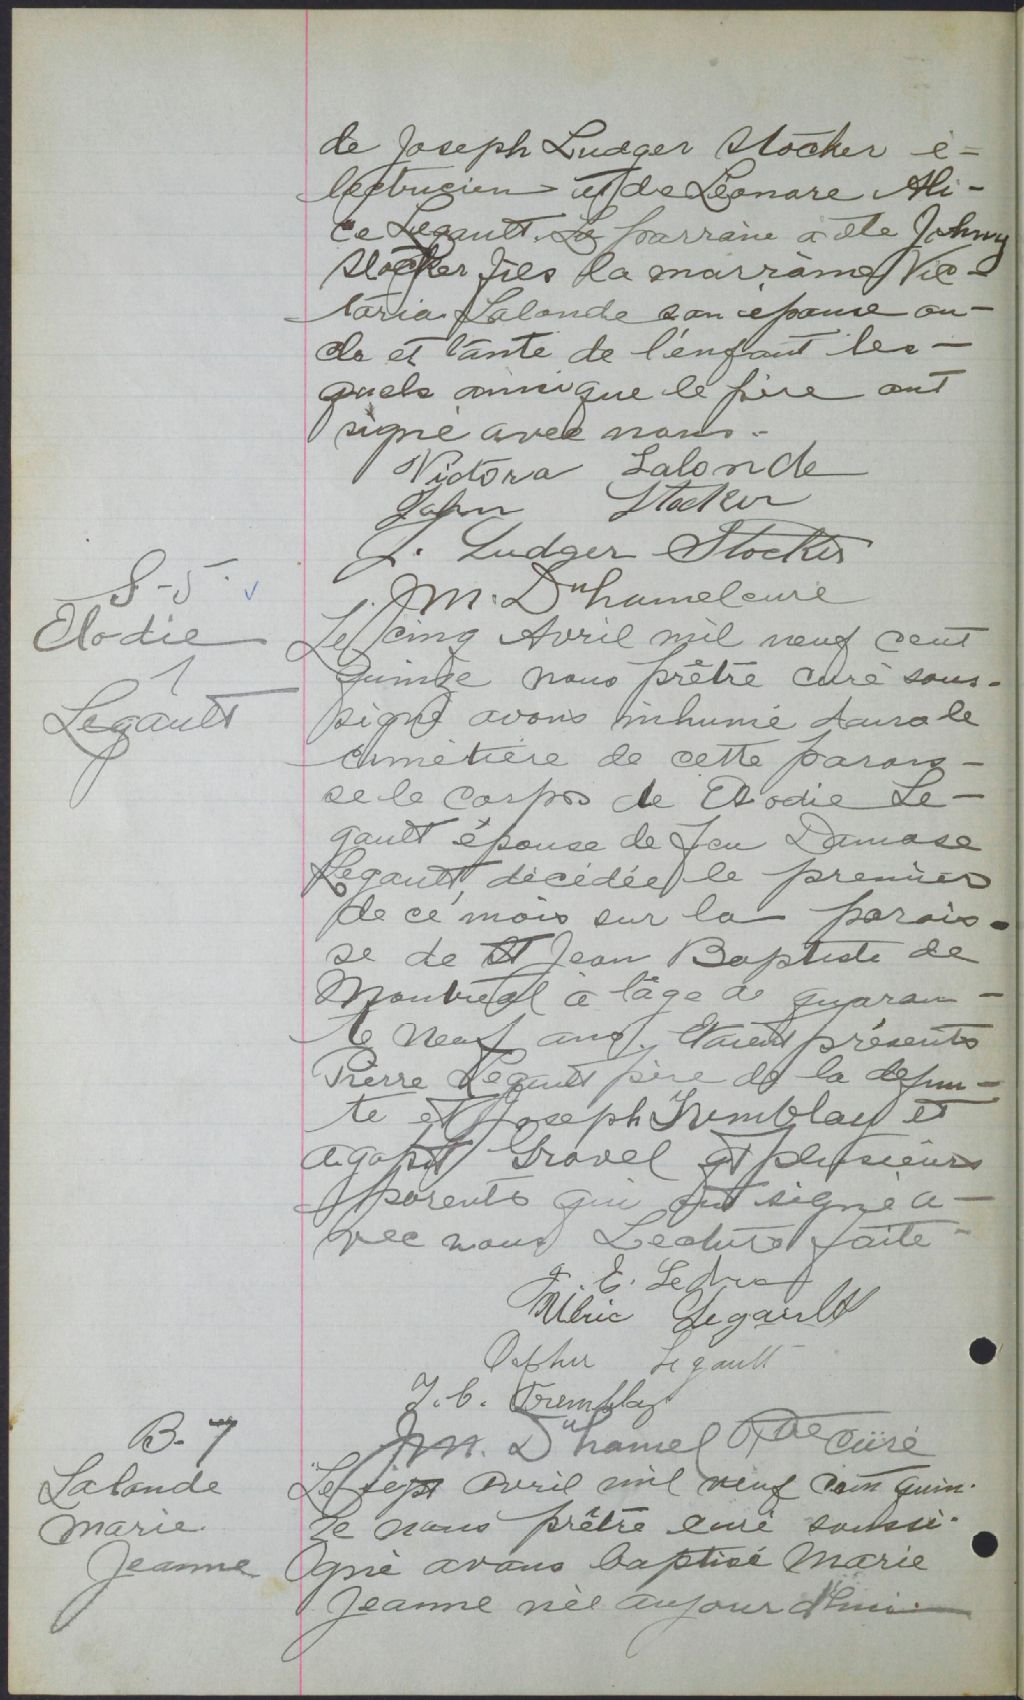 de Joseph Ludger Stocker é=
lectricien et de Léonore Ali-
ce Legault. Le parrain a été Johnny
Stocker fils la marraine Vic-
toria Lalonde son épouse on-
cle et tante de l'enfant les-
quels ainsi que le père ont
signé avec nous.
Victora Lalonde
John Stocker
J. Ludger Stocker
M. Duhamel curé
S-5.
Elodie
Legault
Le cinq Avril mil neuf cent
quinze nous prêtre curé sous-
signé avons inhumé dans le
cimétière de cette parois-
se le corps de Elodie Le-
gault épouse de feu Damase
Legault, décédée le premier
de ce mois sur la parois-
se de St Jean Baptiste de
Montréal à l'âge de quaran-
te neuf ans. Etaient présents
Pierre Legault père de la défun-
te et Joseph Tremblay et
Agapit Gravel et plusieurs
parents qui ont signé a-
vec nous Lecture faite-
J. E.
Ulric Legault
Legault
J. C. Tremblay
M. Duhamel Ptre curé
B-7
Lalonde
Marie
Jeanne
Le sept Avril mil neuf cent quin-
ze nous prêtre curé soussi-
gné avons baptisé Marie
Jeanne née aujourd'hui